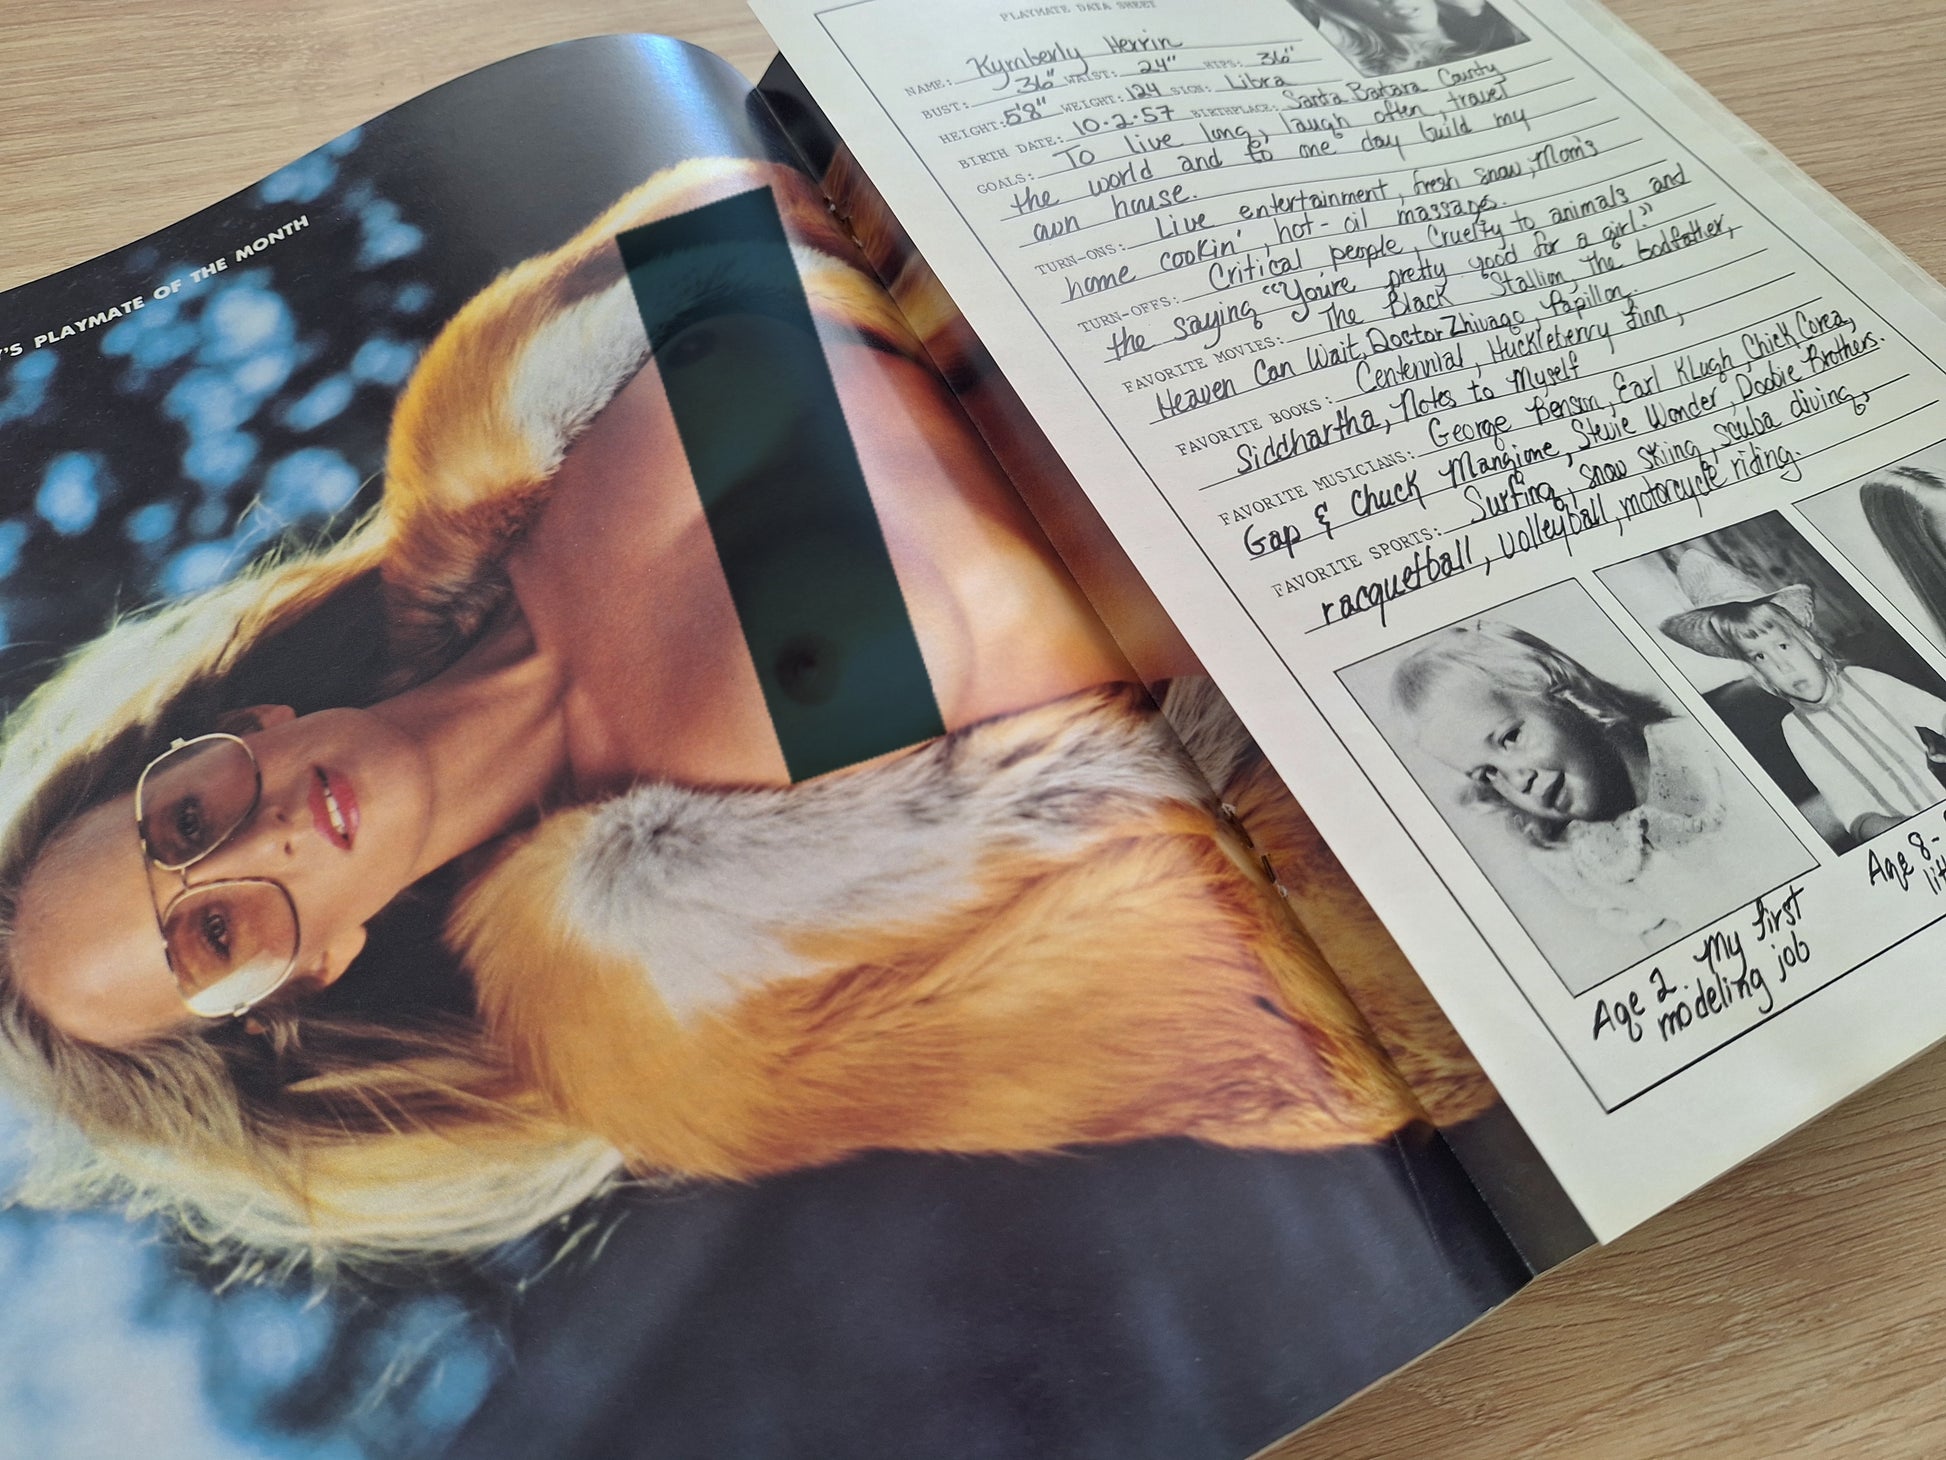 'S PLAYMATE OF THE MONTH
PLAYMATE DATA SHEET
NAME: Kymberly Herrin
BUST: 36" WAIST: 24" HIPS: 36"
HEIGHT: 5'8" WEIGHT: 124 SIGN: Libra
BIRTH DATE: 10-2-57 BIRTHPLACE: Santa Barbara County
GOALS: To live long, laugh often, travel
the world and to one day build my
own house.
TURN-ONS: Live entertainment, fresh snow, Mom's
home cookin', hot-oil massages.
TURN-OFFS: Critical people, Cruelty to animals and
the saying "You're pretty good for a girl."
FAVORITE MOVIES: The Black Stallion, The Godfather,
Heaven Can Wait, Doctor Zhivago, Papillon.
FAVORITE BOOKS: Centennial, Huckleberry Finn,
Siddhartha, Notes to Myself
FAVORITE MUSICIANS: George Benson, Earl Klugh, Chick Corea,
Gap & Chuck Mangione, Stevie Wonder, Doobie Brothers.
FAVORITE SPORTS: Surfing, snow skiing, scuba diving,
racquetball, volleyball, motorcycle riding.
Age 2. My first
modeling job
Age 8-